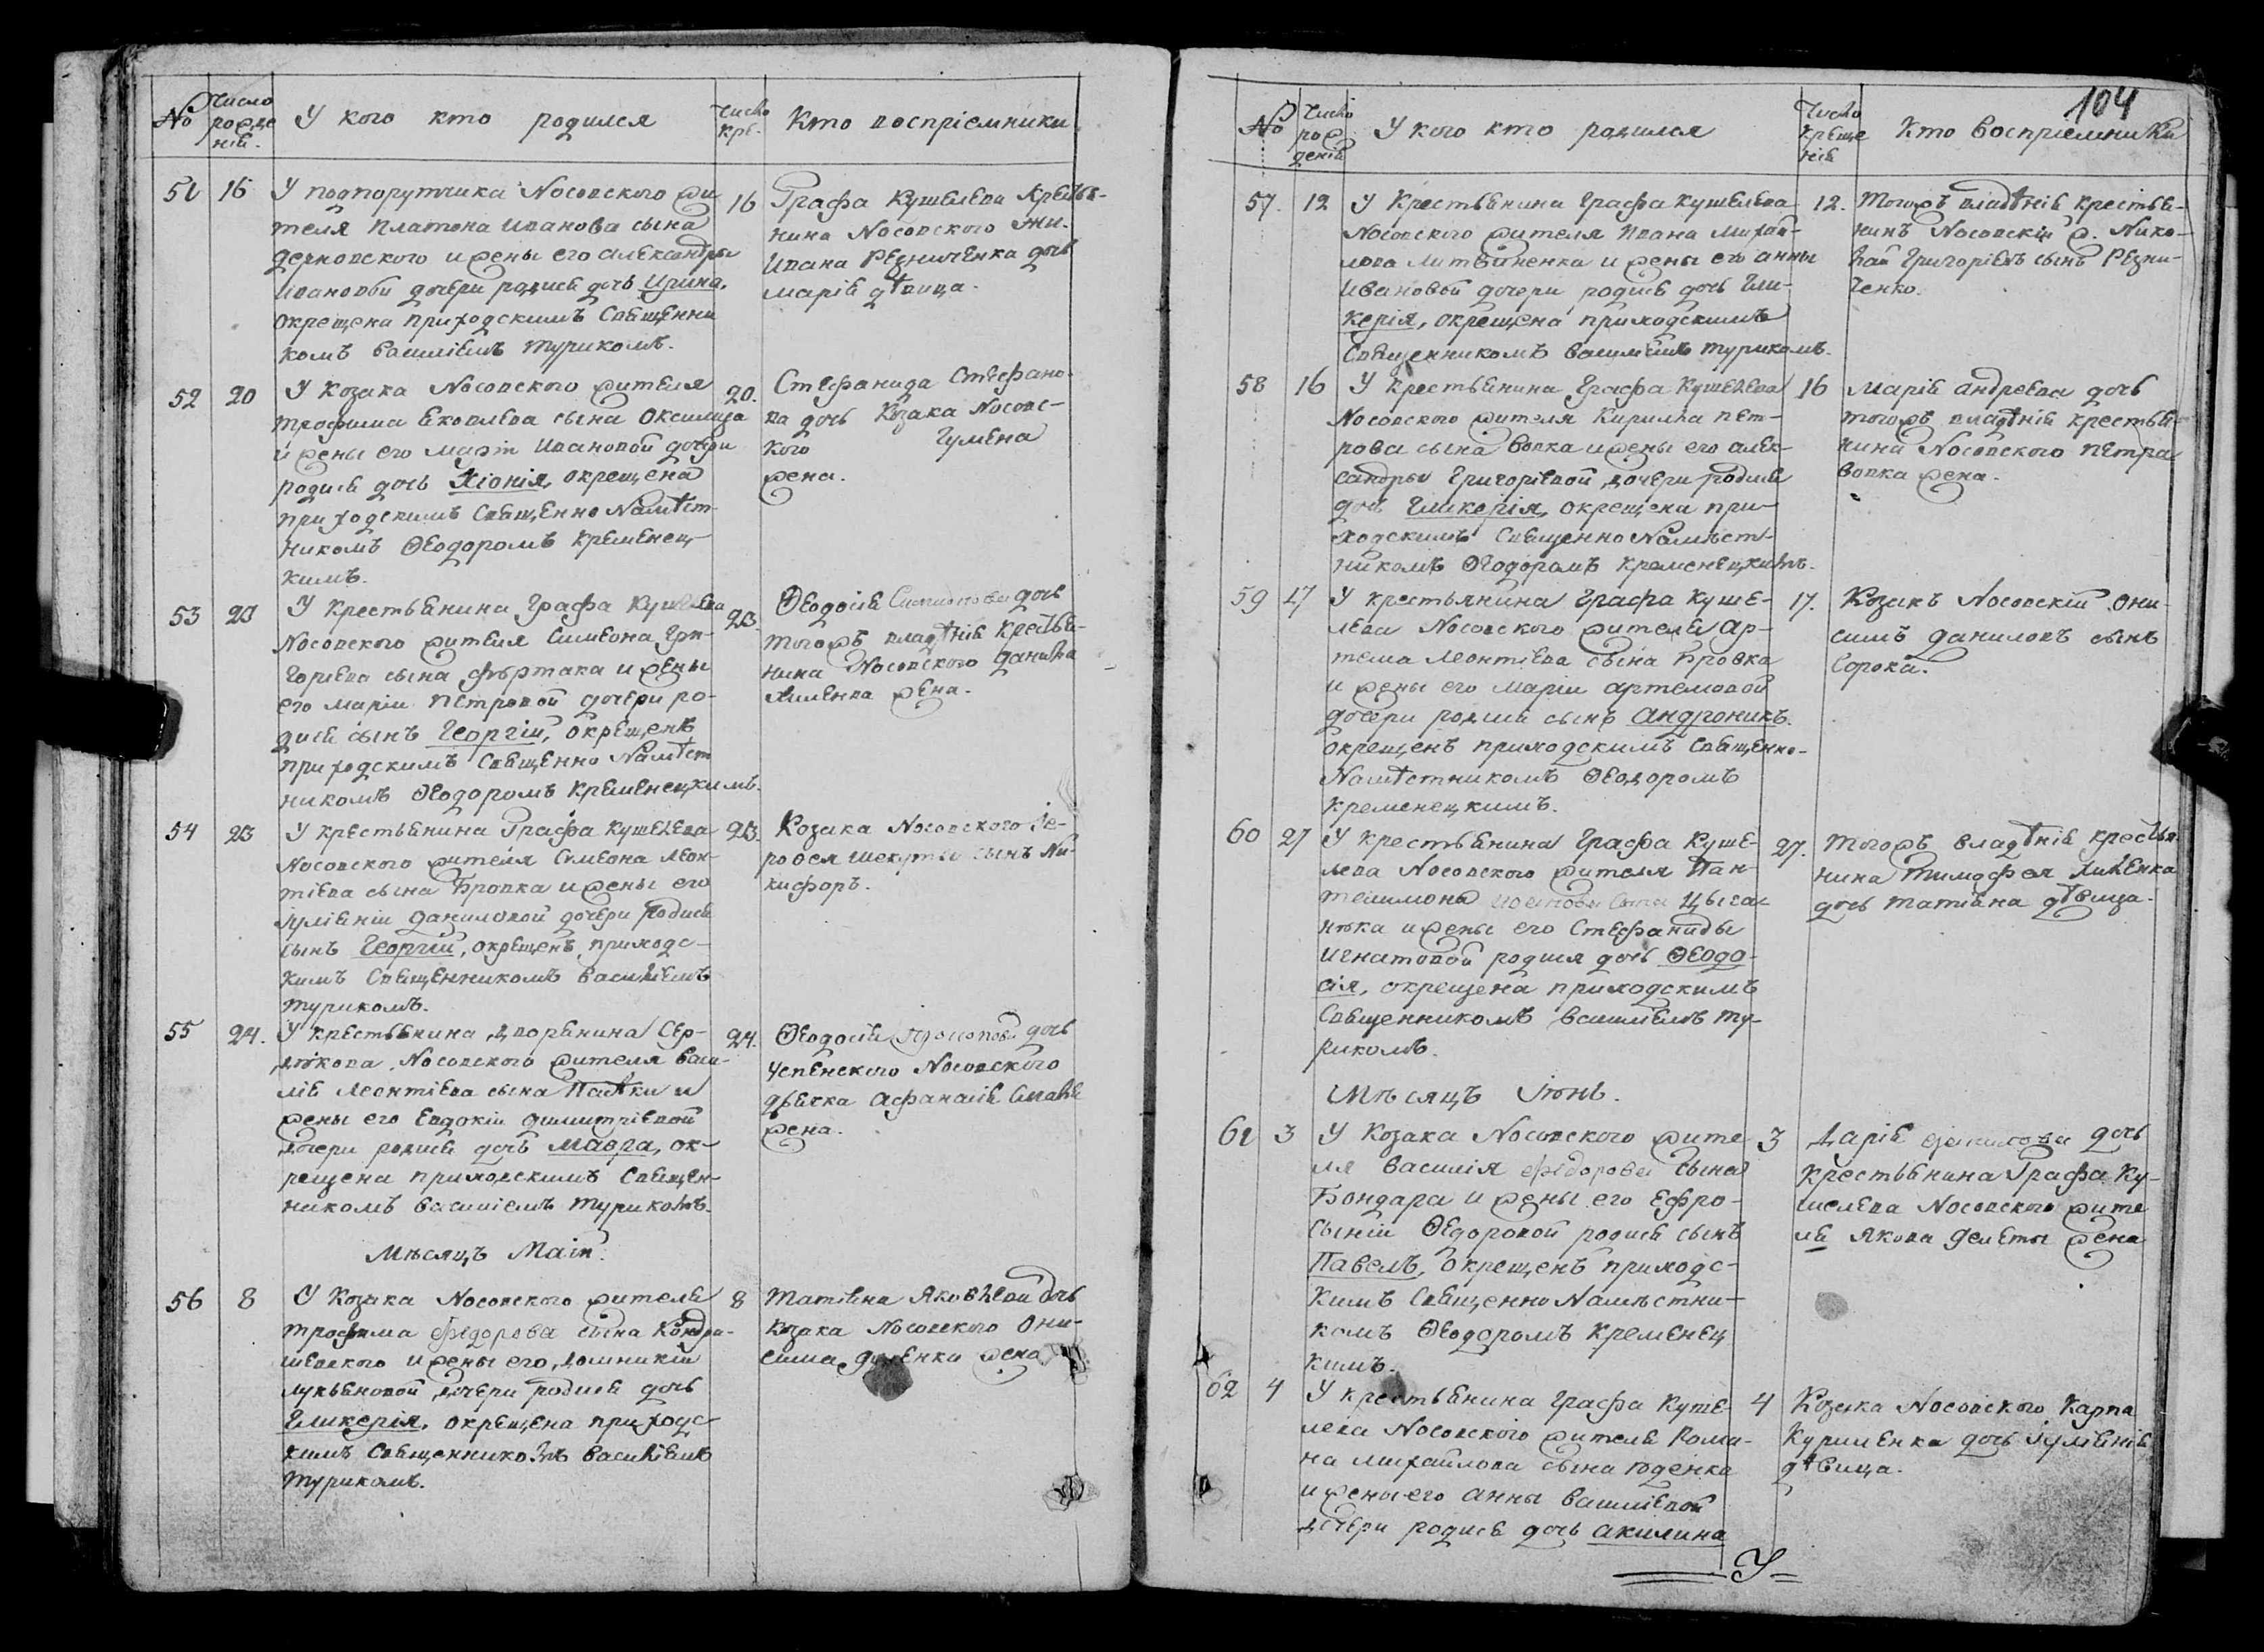 № Число рожде ній. У кого кто родился Число кре. Кто воспріемники
51 16 У подпорутчика Носовского жи
теля Платона Иванова сына
Дерновского и жены его Александры
Ивановой дочери родися дочь Ирина,
окрещена приходскимъ Священни
комъ Василіемъ Турикомъ.
16 Графа Кушелева Крестья-
нина Носовского жи.
Ивана Резниченка дочь
Марія дѣвица.
52 20 У Козака Носовского жителя
Трофима Іковлева сына
и жены его Марѳи Ивановой дочери
родися дочь Хіонія, окрещена
приходскимъ Священно Намѣст
никомъ Ѳеодоромъ Кременец
кимъ.
20. Стефанида Стефано-
ва дочь Козака Носовс-
кого Гумена
жена.
53 23 У Крестьянина Графа Кушелева
Носовского жителя Симеона Гри-
горіева сына и жены
его Маріи Петровой дочери ро-
дися сынъ Георгій, окрещенъ
приходскимъ Священно Намѣст
никомъ Ѳеодоромъ Кременецкимъ.
23. Ѳеодосія Симионова дочь
тогожъ владѣнія Крестья-
нина Носовского Данила
жена.
54 23 У крестьянина Графа Кушелева
Носовского жителя Симеона Леон-
тіева сына Бровка и жены его
Іуліяніи Даниловой дочери родися
сынъ Георгій, окрещенъ, приходс-
кимъ Священникомъ Василіемъ
Турикомъ.
23. Козака Носовского Іе-
роѳея сынъ Ни-
кифоръ.
55 24. У крестьянина Дворянина Сер-
дюкова Носовского жителя Васи-
лія Леонтіева сына и
жены его Евдокіи Димитріевой
дочери родися дочь Мавра, ок-
рещена приходскимъ Священ-
никомъ Василіемъ Турикомъ.
24. Ѳеодосія дочь
Успенского Носовского
дьячка Афанасія
жена.
Мѣсяцъ Маій.
56 8 У Козака Носовского жителя
Трофима Федорова сына
и жены его Домникіи
Лукьяновой дочери родися дочь
Гликерія, окрещена приходс-
кимъ Священникомъ Василіемъ
Турикомъ.
8 Татіяна Яковлева дочь
Козака Носовского Они-
сима жена
104
№ Число рож деній У кого кто родился Число Креще нія Кто воспріемники
57. 12 У Крестьянина Графа Кушелева
Носовского жителя Ивана Михай-
лова Литвиненка и жены его Анны
Ивановой дочери родися дочь Гли-
керія, окрещена приходскимъ
Священникомъ Василіемъ Турикомъ.
12. Тогожъ владѣнія крестья-
нинъ Носовскій ж. Нико-
лай Григоріевъ сынъ Резни-
ченко.
58 16 У крестьянина Графа Кушелева
Носовского жителя Кирилла Пет-
рова сына Вовка и жены его Алек-
сандры Григоріевой дочери родися
дочь Гликерія, окрещена при-
ходскимъ Священно Намѣст-
никомъ Ѳеодоромъ Кременецкимъ.
16 Марія Андреева дочь
тогожъ владѣнія крестья-
нина Носовского Петра
Вовка жена.
59 17 У крестьянина Графа Куше-
лева Носовского жителя Ар-
тема Леонтіева сына Бровка
и жены его Маріи Артемовой
дочери родися сынъ Андроникъ.
окрещенъ приходскимъ Священно-
Намѣстникомъ Ѳеодоромъ
Кременецкимъ.
17. Козакъ Носовскій Они-
симъ Даниловъ сынъ
Сорока.
60 27 У крестьянина Графа Куше-
лева Носовского жителя Пан-
телимона сына Цыга-
нка и жены его Стефаниды
Игнатовой родися дочь Ѳеодо-
сія, окрещена приходскимъ
Священникомъ Василіемъ Ту-
рикомъ.
27. Тогожъ владѣнія крестья
нина Тимофея
дочь Татіяна дѣвица.
Мѣсяцъ Іюнь.
61 3 У Козака Носовского жите
ля Василія Федорова сына
Бондара и жены его Ефро-
сыніи Ѳедоровой родися сынъ
Павелъ, окрещенъ приходс-
кимъ Священно Намѣстни-
комъ Ѳеодоромъ Кременец
кимъ.
3 Дарія дочь
крестьянина Графа Ку-
шелева Носовского жите
ля Якова жена
62 4 У крестьянина Графа Куше-
лева Носовского жителя Рома-
на Михайлова сына Юденка
и жены его Анны Василіевой
дочери родися дочь Акилина
4 Козака Носовского Карпа
Куриленка дочь Іуліянія
дѣвица.
У